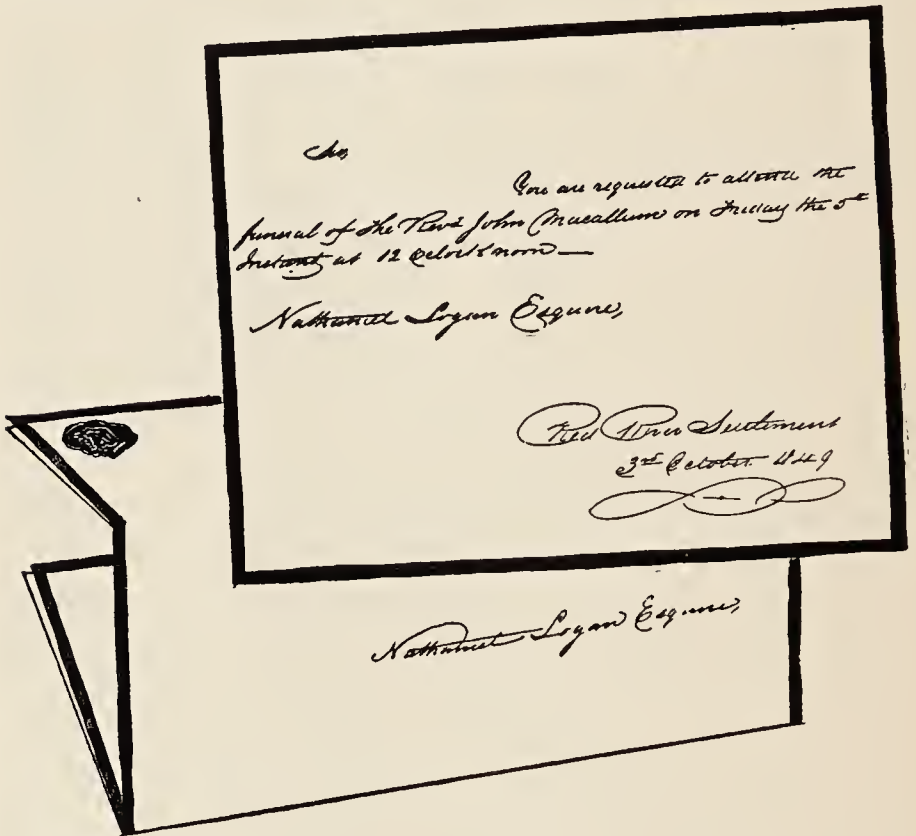 Sir,
You are requested to attend the
funeral of the Revd John Macallum on Friday the 5th
Instant at 12 Oclock noon —
Nathaniel Logan Esquire,
Red River Settlement
3rd October 1849
Nathaniel Logan Esquire,